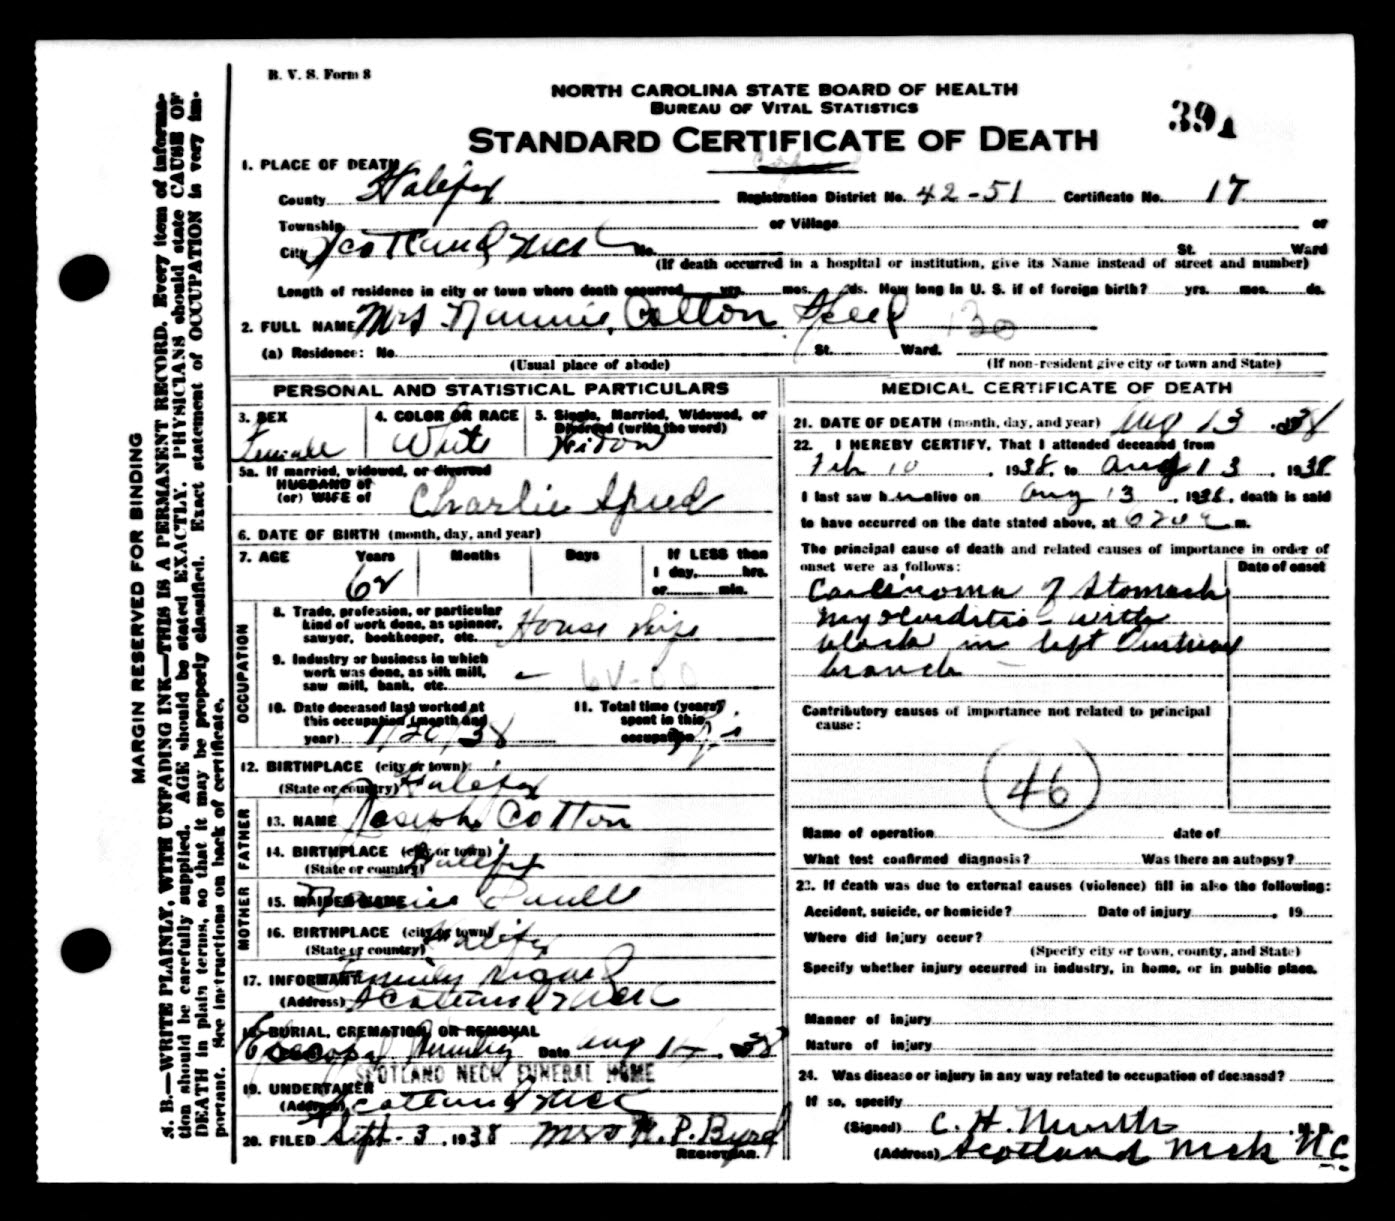 R. V. S. Form 8
NORTH CAROLINA STATE BOARD OF HEALTH
BUREAU OF VITAL STATISTICS
STANDARD CERTIFICATE OF DEATH
39
1. PLACE OF DEATH
County Halifax Registration District No. 42-51 Certificate No. 17
Township or Village or
City Scotland Neck No. St. Ward
(If death occurred in a hospital or institution, give its Name instead of street and number)
Length of residence in city or town where death occurred yrs. mos. ds. How long in U. S. if of foreign birth? yrs. mos. ds.
2. FULL NAME Mrs Nannie Cotton Speed
(a) Residence: No. St. Ward.
(Usual place of abode) (If non-resident give city or town and State)
PERSONAL AND STATISTICAL PARTICULARS
3. SEX 4. COLOR OR RACE 5. Single, Married, Widowed, or Divorced (write the word)
Female White Widow
5a. If married, widowed, or divorced
HUSBAND of
(or) WIFE of Charlie Speed
6. DATE OF BIRTH (month, day, and year)
7. AGE Years Months Days If LESS than
1 day, hrs.
62 or min.
OCCUPATION
8. Trade, profession, or particular
kind of work done, as spinner,
sawyer, bookkeeper, etc. House Wife
9. Industry or business in which
work was done, as silk mill,
saw mill, bank, etc. –
10. Date deceased last worked at
this occupation (month and
year)
11. Total time (years)
spent in this
occupation
12. BIRTHPLACE (city or town)
(State or country) Halifax
FATHER
13. NAME Joseph Cotton
14. BIRTHPLACE (city or town)
(State or country) Halifax
MOTHER
15. MAIDEN NAME
16. BIRTHPLACE (city or town)
(State or country) Halifax
17. INFORMANT
(Address) Scotland Neck
18. BURIAL, CREMATION, OR REMOVAL
Date Aug 14, 38
SCOTLAND NECK FUNERAL HOME
19. UNDERTAKER
(Address) Scotland Neck
20. FILED Sept. 3, 1938 Mrs R. P. Byrd
REGISTRAR.
MEDICAL CERTIFICATE OF DEATH
21. DATE OF DEATH (month, day, and year) Aug 13 38
22. I HEREBY CERTIFY, That I attended deceased from
Feb 10, 1938, to Aug 13, 1938
I last saw her alive on Aug 13, 1938, death is said
to have occurred on the date stated above, at m.
The principal cause of death and related causes of importance in order of
onset were as follows: Date of onset
Carcinoma of Stomach
Myocarditis with
block in left
branch –
Contributory causes of importance not related to principal
cause:
46
Name of operation date of
What test confirmed diagnosis? Was there an autopsy?
23. If death was due to external causes (violence) fill in also the following:
Accident, suicide, or homicide? Date of injury , 19
Where did injury occur?
(Specify city or town, county, and State)
Specify whether injury occurred in industry, in home, or in public place.
Manner of injury
Nature of injury
24. Was disease or injury in any way related to occupation of deceased?
If so, specify
(Signed) C. H. , M. D.
(Address) Scotland Neck N.C.
MARGIN RESERVED FOR BINDING
N. B.—WRITE PLAINLY, WITH UNFADING INK—THIS IS A PERMANENT RECORD. Every item of informa-
tion should be carefully supplied. AGE should be stated EXACTLY. PHYSICIANS should state CAUSE OF
DEATH in plain terms, so that it may be properly classified. Exact statement of OCCUPATION is very im-
portant. See instructions on back of certificate.